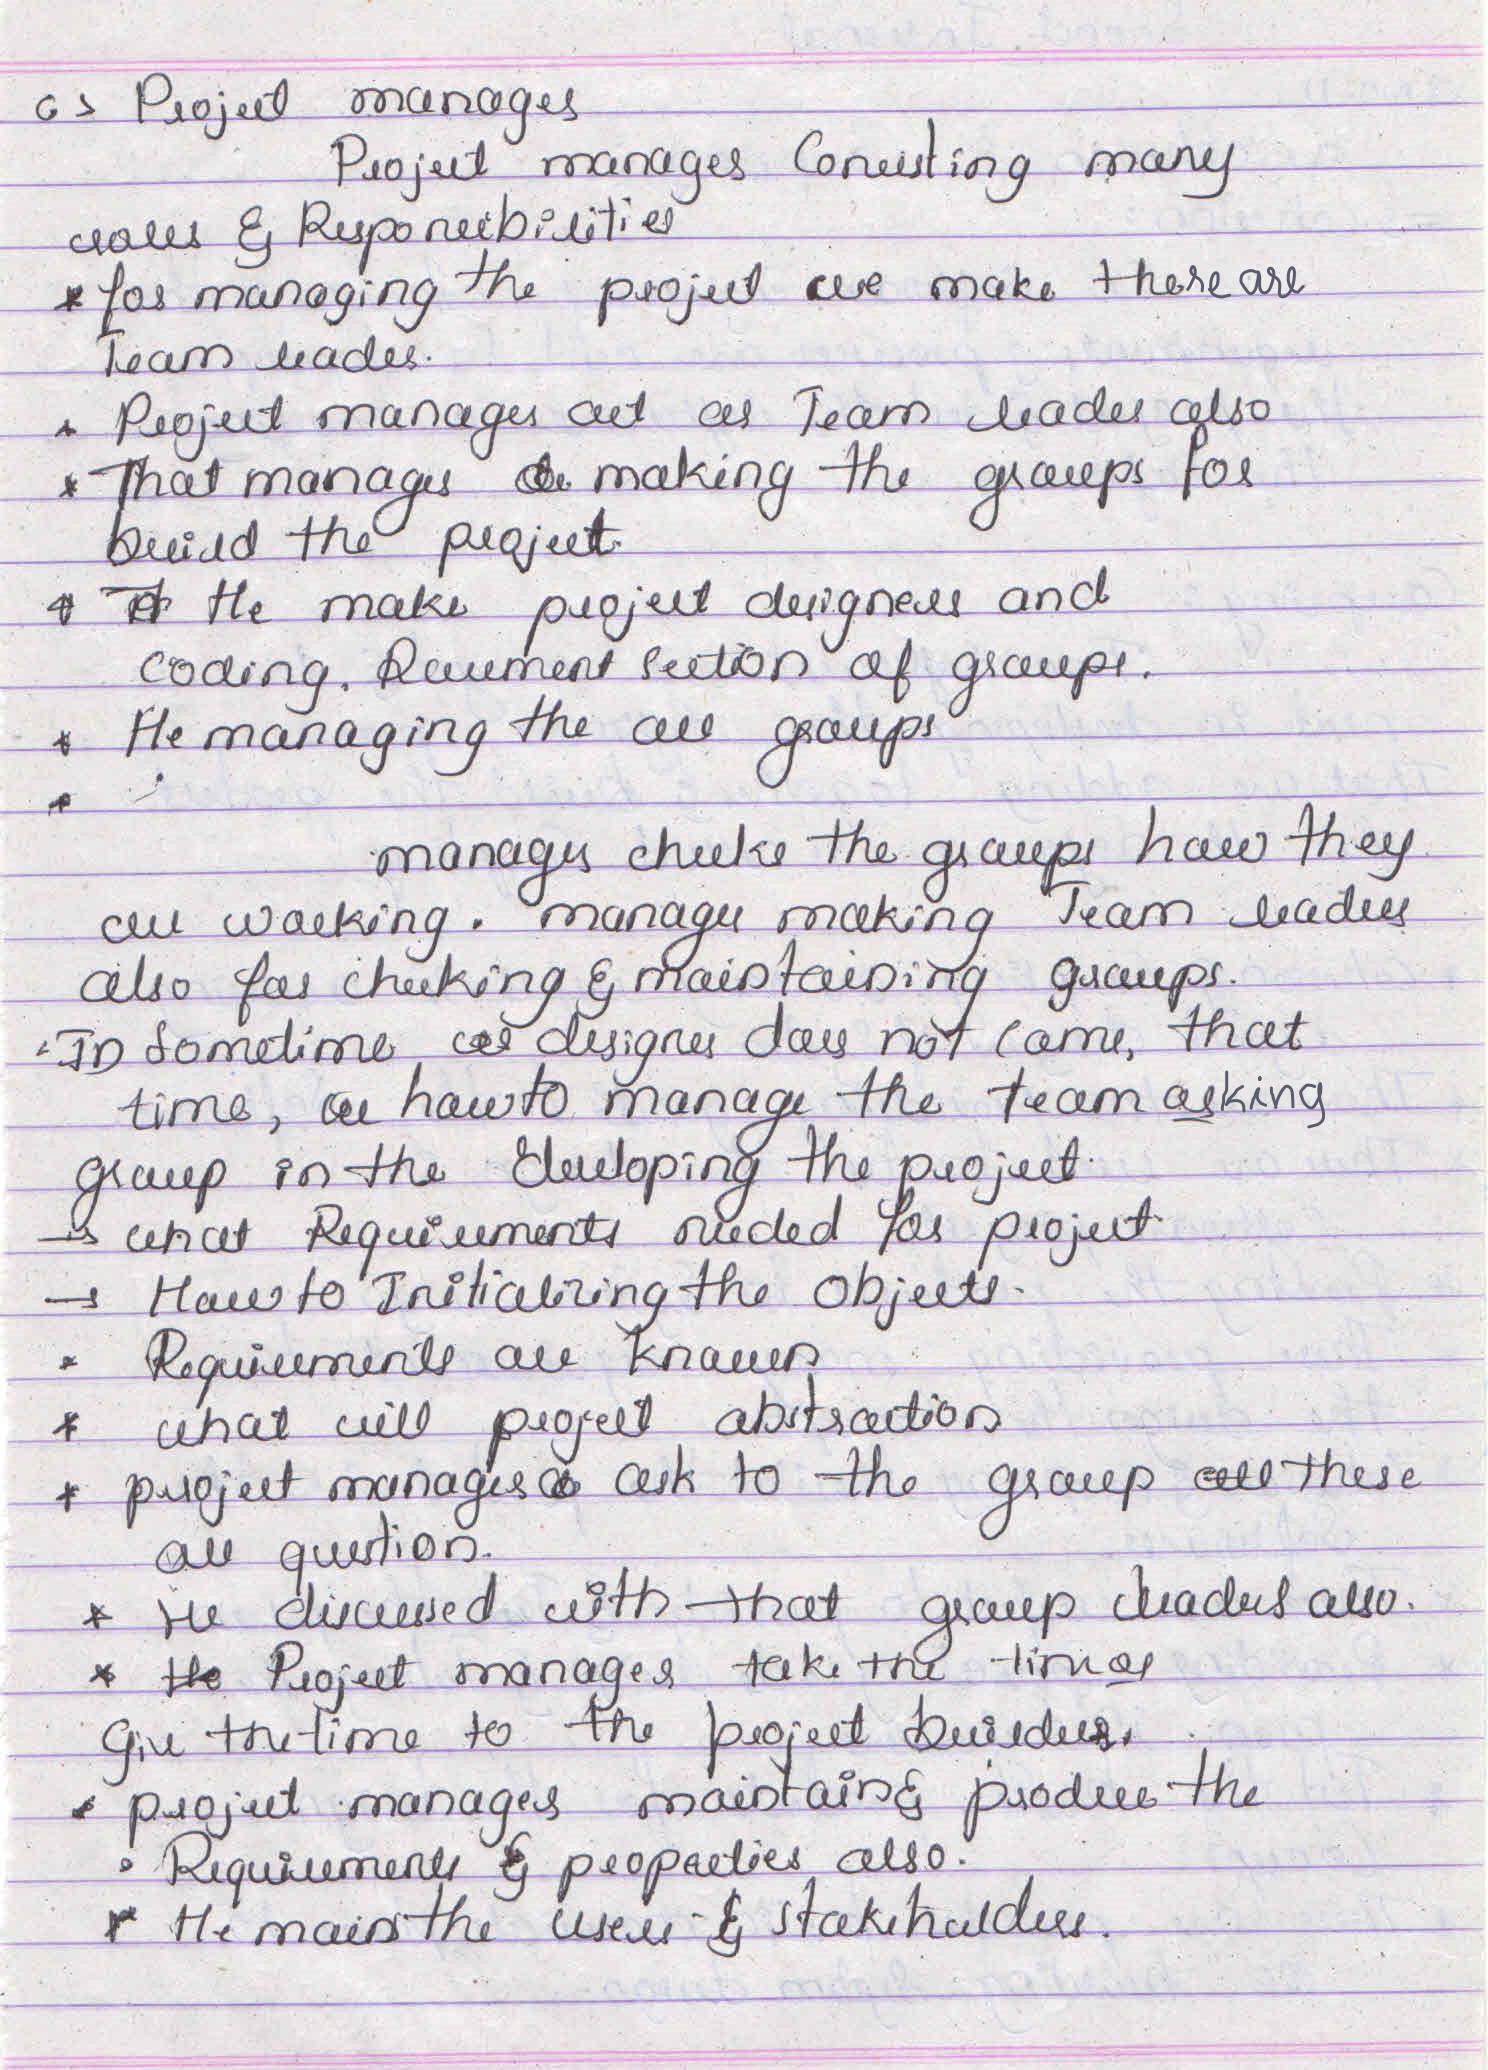 6> Project manager
Project manager Consisting many
roles & Responsibilities
* for managing the project we make there are
Team leader.
* Project manager act as Team leader also
* That manager making the groups for
build the project.
* He make project designers and
coding. Document section of groups.
* He managing the all groups
*
manager checks the groups how they
are working. manager making Team leaders
also for checking & maintaining groups.
* In Sometime designer does not come, that
time, how to manage the team asking
group in the developing the project.
→ what Requirements needed for project.
→ How to Initializing the objects.
* Requirements are known
* what will project abstraction
* project manager ask to the group all these
all question.
* He discussed with that group leaders also.
* Project manager take the time as
Give the time to the project builders.
* project manager maintain & produce the
• Requirements & properties also.
* He main the users & stakeholders.